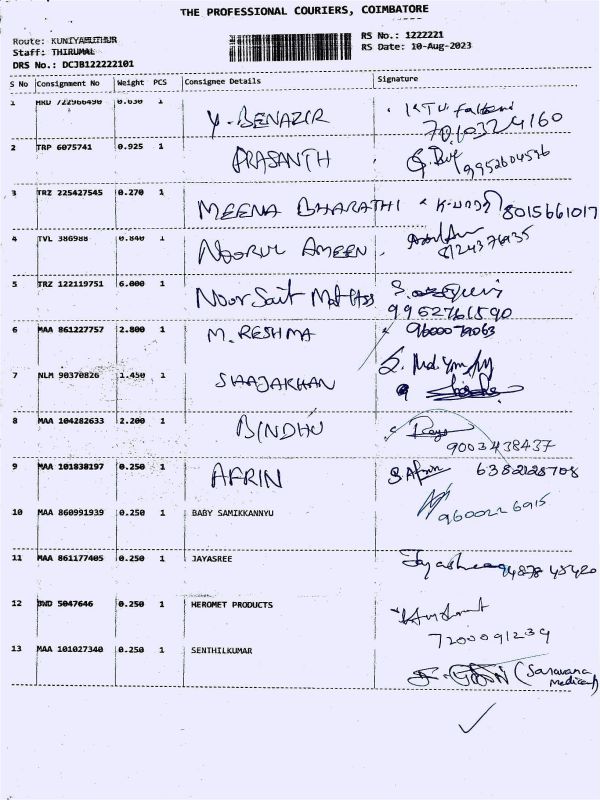 THE PROFESSIONAL COURIERS, COIMBATORE
Route: KUNIYAMUTHUR
Staff: THIRUMAL
DRS No.: DCJB122222101
RS No.: 1222221
RS Date: 10-Aug-2023
S No Consignment No Weight PCS Consignee Details Signature
1 HRD 722966490 0.630 1 Y. BENAZIR
2 TRP 6075741 0.925 1 PRASANTH 9952604596
3 TRZ 225427545 0.270 1 MEENA BHARATHI 8015661017
4 TVL 386988 0.840 1 NOORUL AMEEN 8124376935
5 TRZ 122119751 6.000 1 Noor Sait 9952761590
6 MAA 861227757 2.800 1 M. RESHMA 9600079063
7 NLM 90370826 1.450 1 SHAJAKHAN
8 MAA 104282633 2.200 1 BINDHU 9003438437
9 MAA 101838197 0.250 1 AFRIN S Afrin 6382128708
10 MAA 860991939 0.250 1 BABY SAMIKKANNYU 9600226915
11 MAA 861177405 0.250 1 JAYASREE Jayashree 94878 45420
12 BWD 5047646 0.250 1 HEROMET PRODUCTS
7200091239
13 MAA 101027340 0.250 1 SENTHILKUMAR (Saravana
medical)